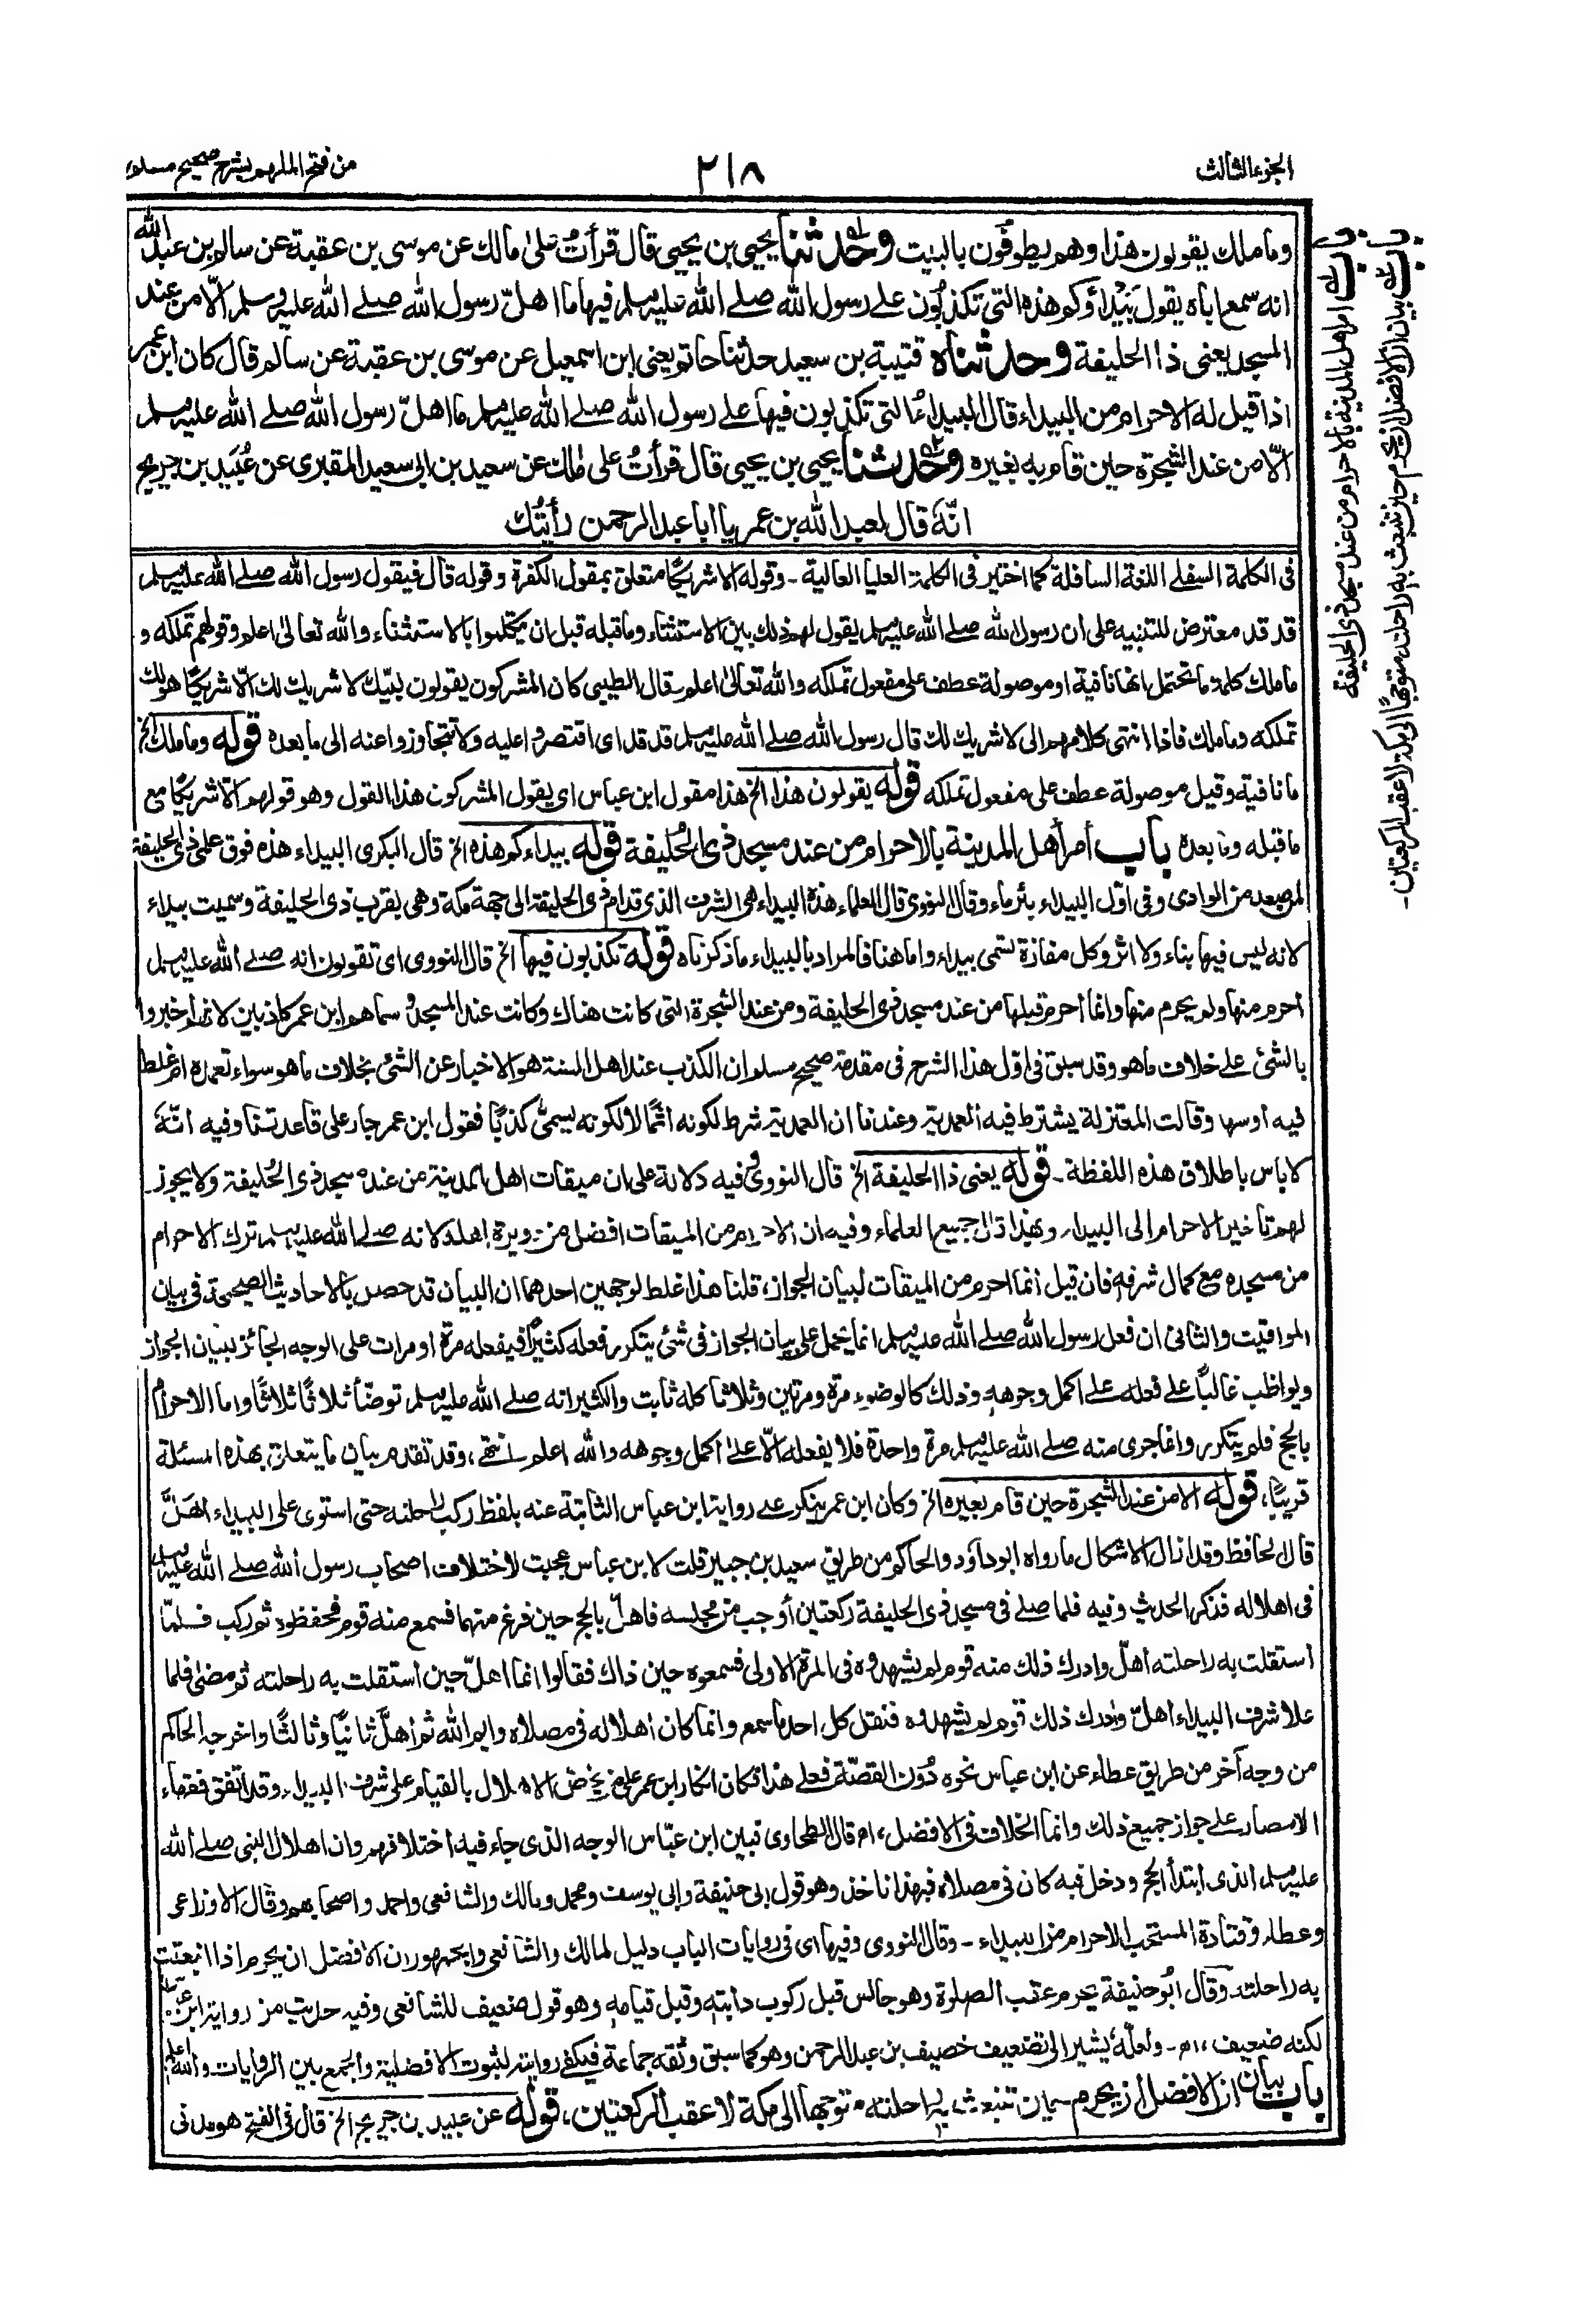 الجزء الثالث
٢١٨
من فتح الملهم بشرح صحيح مسلم
وما ملك يقولون هذا وهم يطوفون بالبيت وحدثنا يحيى بن يحيى قال قرأت على مالك عن موسى بن عقبة عن سالم بن عبد الله
انه سمع اباه يقول بيداؤكم هذه التى تكذبون على رسول الله صلے الله عليه وسلم فيها ما اهلّ رسول الله صلے الله عليه وسلم الّا من عند
المسجد يعنى ذا الحليفة وحدثناه قتيبة بن سعيد حدثنا حاتم يعنى ابن اسمعيل عن موسى بن عقبة عن سالم قال كان ابن عمر
اذا قيل له الاحرام من البيداء قال البيداء التى تكذبون فيها على رسول الله صلے الله عليه وسلم ما اهلّ رسول الله صلے الله عليه وسلم
الّا من عند الشجرة حين قام به بغيره وحدثنا يحيى بن يحيى قال قرأتُ على مٰلك عن سعيد بن ابى سعيد المقبرى عن عُبَيد بن جريج
انّهَ قال لعبد الله بن عمر يا ابا عبد الرحمن رأيتُك
فى الكلمة السفلے اللغة السافلة كما اختير فى الكلمة العليا العالية - وقوله الا شريكًا متعلق بمقول الكفرة وقوله قال فيقول رسول الله صلے الله عليه وسلم
قد قد معترض للتنبيه على ان رسول الله صلے الله عليه وسلم يقول لهم ذلك بين الاستثناء وما قبله قبل ان يتكلموا بالاستثناء والله تعالىٰ اعلم وقولهم تملكه و
ما ملك كلمة ما تحتمل انها نافية او موصولة عطف على مفعول تملكه والله تعالىٰ اعلم. قال الطيبى كان المشركون يقولون لبيّك لا شريك لك الّا شريكًا هو لك
تملكه وما ملك فاذا انتهى كلامهم الى لا شريك لك قال رسول الله صلے الله عليه وسلم قد قد اى اقتصروا عليه ولا تتجاوزوا عنه الى ما بعده قوله وما ملك الخ
ما نافية وقيل موصولة عطف على مفعول تملكه قوله يقولون هذا الخ هذا مقول ابن عباس اى يقول المشركون هذا القول وهو قولهم الا شريكًا مع
ما قبله وما بعده باب أمر أهل المدينة بالاحرام من عند مسجد ذى الحُليفة قوله بيداءكم هذه الخ قال البكرى البيداء هذه فوق علمى ذى الحليفة
لمن صعد من الوادى وفى اوّل البيداء بئر ماء وقال النووى قال العلماء هذه البيداء هى الشرف الذى قدام ذى الحليفة الى جهة مكة وهى بقرب ذى الحليفة وسميت بيداء
لانه ليس فيها بناء ولا اثر وكل مفازة تسمى بيداء واما هنا فالمراد بالبيداء ما ذكرناه قوله تكذبون فيها الخ قال النووى اى تقولون انه صلے الله عليه وسلم
أحرم منها ولم يحرم منها وانما أحرم قبلها من عند مسجد ذى الحليفة ومن عند الشجرة التى كانت هناك وكانت عند المسجد و سماهم ابن عمر كاذبين لانهم أخبروا
بالشئ على خلاف ما هو وقد سبق فى اوّل هذا الشرح فى مقدمة صحيح مسلم ان الكذب عند اهل السنة هو الاخبار عن الشئ بخلاف ما هو سواء تعمده ام غلط
فيه او سها وقالت المعتزلة يشترط فيه العمدية وعندنا ان العمدية شرط لكونه اثمًا لا لكونه يسمّى كذبًا فقول ابن عمر جار على قاعدتنا وفيه انّهَ
لا باس باطلاق هذه اللفظة - قوله يعنى ذا الحليفة الخ قال النووى وفيه دلالة على ان ميقات اهل المدينة من عند مسجد ذى الحُليفة ولا يجوز
لهم تاخير الاحرام الى البيداء وبهذا قال جميع العلماء وفيه ان الاحرام من الميقات افضل من دويرة اهله لانه صلے الله عليه وسلم ترك الاحرام
من مسجده مع كمال شرفه فان قيل انما احرم من الميقات لبيان الجواز، قلنا هذا غلط لوجهين احدهما ان البيان قد حصل بالاحاديث الصحيحة فى بيان
المواقيت والثانى ان فعل رسول الله صلے الله عليه وسلم انما يحمل على بيان الجواز فى شئ يتكرر فعله كثيرًا فيفعله مرة او مرات على الوجه الجائز لبيان الجواز
ويواظب غالبًا على فعله على اكمل وجوهه وذلك كالوضوء مرة ومرتين وثلاثا كله ثابت والكثير انه صلے الله عليه وسلم توضّأ ثلاثًا ثلاثًا واما الاحرام
بالحج فلم يتكرر وانما جرى منه صلے الله عليه وسلم مرة واحدة فلا يفعله الّا علىٰ اكمل وجوهه والله اعلم انتهى، وقد تقدم بيان ما يتعلق بهذه المسئلة
قريبًا، قوله الا من عند الشجرة حين قام بعيره الخ وكان ابن عمر ينكر على رواية ابن عباس الثابتة عنه بلفظ ركب راحلته حتى استوى على البيداء اهَلَّ
قال الحافظ وقد ازال الاشكال ما رواه ابو داؤد والحاكم من طريق سعيد بن جبير قلت لابن عباس عجبت لاختلاف اصحاب رسول الله صلے الله عليه وسلم
فى اهلاله فذكر الحديث وفيه فلما صلے فى مسجد ذى الحليفة ركعتين أوجب من مجلسه فاهلّ بالحج حين فرغ منهما فسمع منه قوم فحفظوه ثم ركب فلمّا
استقلت به راحلته أهلّ وادرك ذلك منه قوم لم يشهدوه فى المرة الاولى فسمعوه حين ذاك فقالوا انما اهلّ حين استقلت به راحلته ثم مضىٰ فلما
علا شرف البيداء اهلّ وادرك ذلك قوم لم يشهدوه فنقل كل احد ما سمع وانما كان اهلاله فى مصلاه وايم الله ثم أهلَّ ثانيًا وثالثًا واخرجه الحاكم
من وجه آخر من طريق عطاء عن ابن عباس نحوه دُون القصّة فعلى هذا فكان انكار ابن عمر على من يخص الاهلال بالقيام على شرف البيداء، وقد اتفق فقهاء
الامصار على جواز جميع ذلك وانما الخلاف فى الافضل، اهـ قال الطحاوى تبين ابن عبّاس الوجه الذى جاء فيه اختلافهم وان اهلال النبى صلے الله
عليه وسلم الذى ابتدأ الحج ودخل فيه كان فى مصلاه فبهذا ناخذ وهو قول ابى حنيفة وابى يوسف ومحمد ومالك والشافعى واحمد واصحابهم وقال الاوزاعى
وعطاء وقتادة المستحب الاحرام من البيداء - وقال النووى وفيها اى فى روايات الباب دليل لمالك والشافعى والجمهور ان الافضل ان يحرم اذا انبعثت
به راحلته وقال ابُو حنيفة يحرم عقب الصلوة وهو جالس قبل ركوب دابته وقبل قيامه وهو قول ضعيف للشافعى وفيه حديث من رواية ابن عباس
لكنه ضعيف، اهـ - ولعلّهٗ يشير الى تضعيف خصيف بن عبد الرحمن وهو كما سبق وثقه جماعة فيكفى روايته لثبوت الافضلية والجمع بين الروايات والله اعلم
باب بيان ان الافضل ان يحرم حين تنبعث به راحلته متوجها الى مكة لا عقب الركعتين، قوله عن عبيد بن جريج الخ قال فى الفتح هو مدنى
باب امر اهل المدينة بالاحرام من عند مسجد ذى الحليفة
باب بيان ان الافضل ان يحرم حين تنبعث به راحلته متوجهًا الى مكة لا عقب الركعتين-